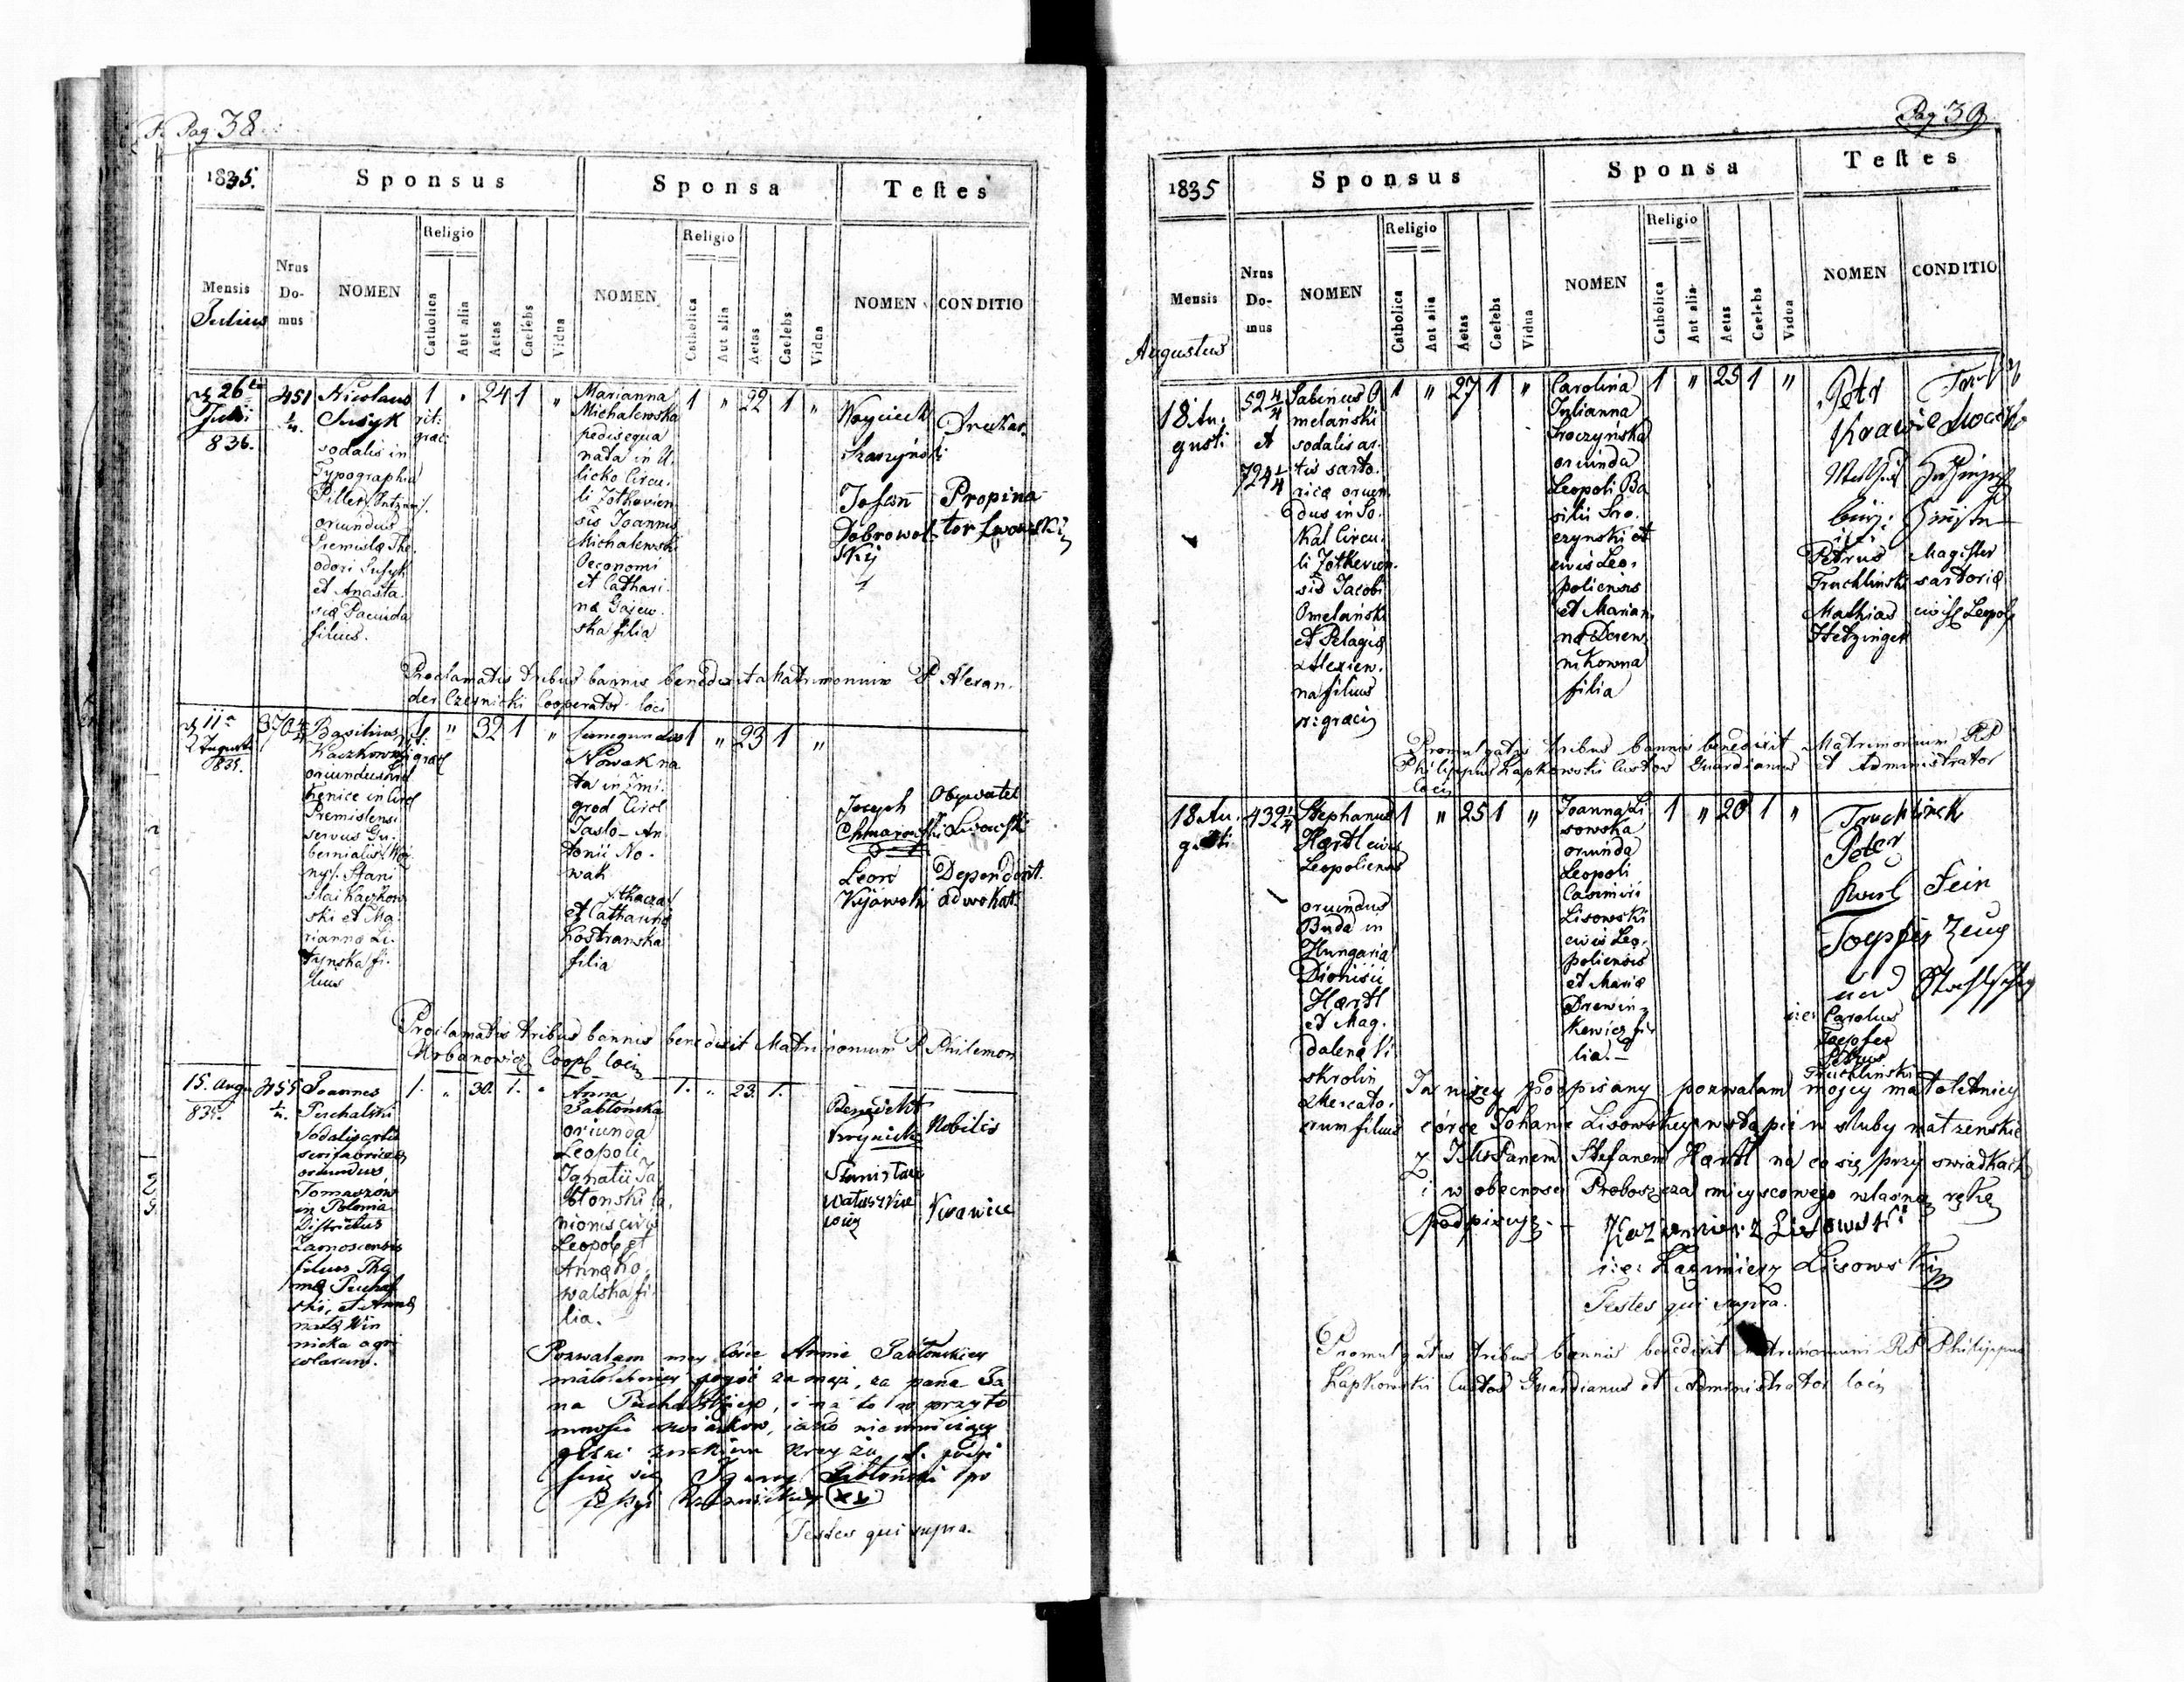 Pag 38
1835.
Sponsus
Sponsa
Testes
Mensis
Julius
Nrus
Do-
mus
NOMEN
Religio
Catholica
Aut alia
Aetas
Caelebs
Vidua
NOMEN
Religio
Catholica
Aut alia
Aetas
Caelebs
Vidua
NOMEN
CONDITIO
26
Julii
836.
451
Nicolaus
Susyk
sodalis in
Typographia
Piller
oriundus
Premislae The-
odori Susyk
et Anasta-
siae
filius.
1
rit:
graec:
"
24
1
"
Marianna
Michalewska
pedisequa
nata in U-
licko Circu-
li Zolkievien
sis Joannis
Michalewski
Oeconomi
et Cathari-
nae Gajew-
ska filia
1
"
22
1
"
Woyciech
Drukar.
Johan
Dobrowol-
skij
Propina-
tor Lwowski
Proclamatis tribus bannis benedixit Matrimonium P. Alexan-
der Czernicki Cooperator loci
11
Augusti
835.
370
Basilius
Kaczkowski
oriundus
in Circ
Premislensi
servus Gu-
bernialis
Stani
slai Kaczkow
ski et Ma-
rianna Li-
tynska fi-
lius
1
rit:
graec
"
32
1
"
Nowak na
ta in Zmi-
grod Circ
Jaslo - An-
tonii No-
wak
et Catharina
Kostranska
filia
1
"
23
1
"
Joseph
Obywatel
Lwowski
Leon
Kijowski
Dependent
adwokat.
Proclamatis tribus bannis benedixit Matrimonium P. Philemon
Urbanowicz Coop loci
15. Aug
835.
455
Joannes
Puchalski
Sodalis artis
oriundus
Tomaszow
in Polonia
Districtus
Zamoscensis
filius Tho
mae Puchal
ski, et Anna
nata Win
nicka agri
colarum.
1.
"
30.
1.
"
Anna
Jablonska
oriunda
Leopoli
Ignatii Ja
blonski la-
nionis civis
Leopol et
Anna Ko-
walska fi-
lia.
1.
"
23.
1.
Benedikt
Nobilis
Stanislaw
Krawiec
Pozwalam mey córce Annie Jabłonskiey
małoletniey pójść za mąż, za pana Ja
na Puchalskiego, i na to w przyto
mności swiadkow, jako nieumiejący
pisać znakiem krzyża podpi
suię się Ignacy Jabłoński
Testes qui supra.
Pag 39
1835
Sponsus
Sponsa
Testes
Mensis
Augustus
Nrus
Do-
mus
NOMEN
Religio
Catholica
Aut alia
Aetas
Caelebs
Vidua
NOMEN
Religio
Catholica
Aut alia
Aetas
Caelebs
Vidua
NOMEN
CONDITIO
18 Au-
gusti
52 4/4
et
724 4/4
Sabinus O
melański
sodalis ar-
tis sarto-
riae oriun
dus in So-
kal Circu-
li Zolkievien-
sis Jacobi
Omelański
et Pelagia
Alexiew-
na filius
r: graeci
1
"
27
1
"
Carolina
Julianna
Sroczyńska
oriunda
Leopoli Ba
silii Sro-
czynski et
civis Leo-
poliensis
et Marian-
na Derew-
nikowna
filia
1
"
23
1
"
Petr
i:e:
Petrus
Truchlinski
Magister
sartoriae
Mathias
Hetzinger
civis Leopol
Promulgatis tribus bannis benedixit Matrimonium RP
Philippus Łapkowski Custos Guardianus et Administrator
loci
18 Au-
gusti
432 2/4
Stephanus
Haertl civis
Leopoliensis
oriundus
Buda in
Hungaria
Dionisii
Haertl
et Mag-
dalena Vi-
skrolin
Mercato-
rum filius
1
"
25
1
"
Joanna Li
sowska
oriunda
Leopoli
Casimiri
Lisowski
civis Leo-
poliensis
et Maria
Drewin-
kewicz fi-
lia. -
1
"
20
1
"
Peter
Karl
Toepfer
Sein
Zeug
i:e: Carolus
Toepfer
Petrus
Truchlinski
Ja niżey podpisany pozwalam mojey małoletniey
córce Johanie Lisowskiey wstąpić w sluby małzenskie
z JMsPanem Stefanem Haertl na co się przy swiadkach
i w obecnosci Proboszcza mieyscowego własną ręką
podpisuję. -
Kazimierz Lisowski
i:e: Kazimierz Lisowski
Testes qui supra.
Promulgatis tribus bannis benedixit Matrimonium RP Philippus
Łapkowski Custos Guardianus et Administrator loci